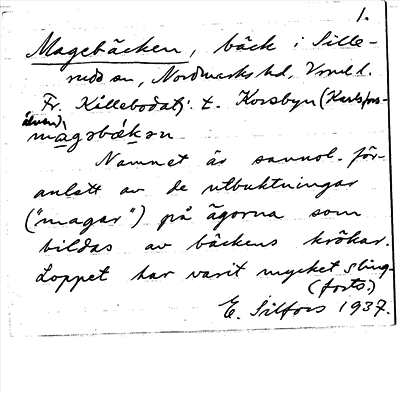 1.
Magebäcken, bäck i Sille-
rud sn, Nordmarks hd, Vrml l.
Fr. Killebodatj. t. Korsbyn (Karlsfors-
älven)
magəbäkən
Namnet är sannol. för-
anlett av de utbuktningar
("magar") på ägorna som
bildas av bäckens krökar.
Loppet har varit mycket sling-
(forts.)
E. Silfors 1937.